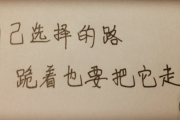 己选择的路
跪着也要把它走